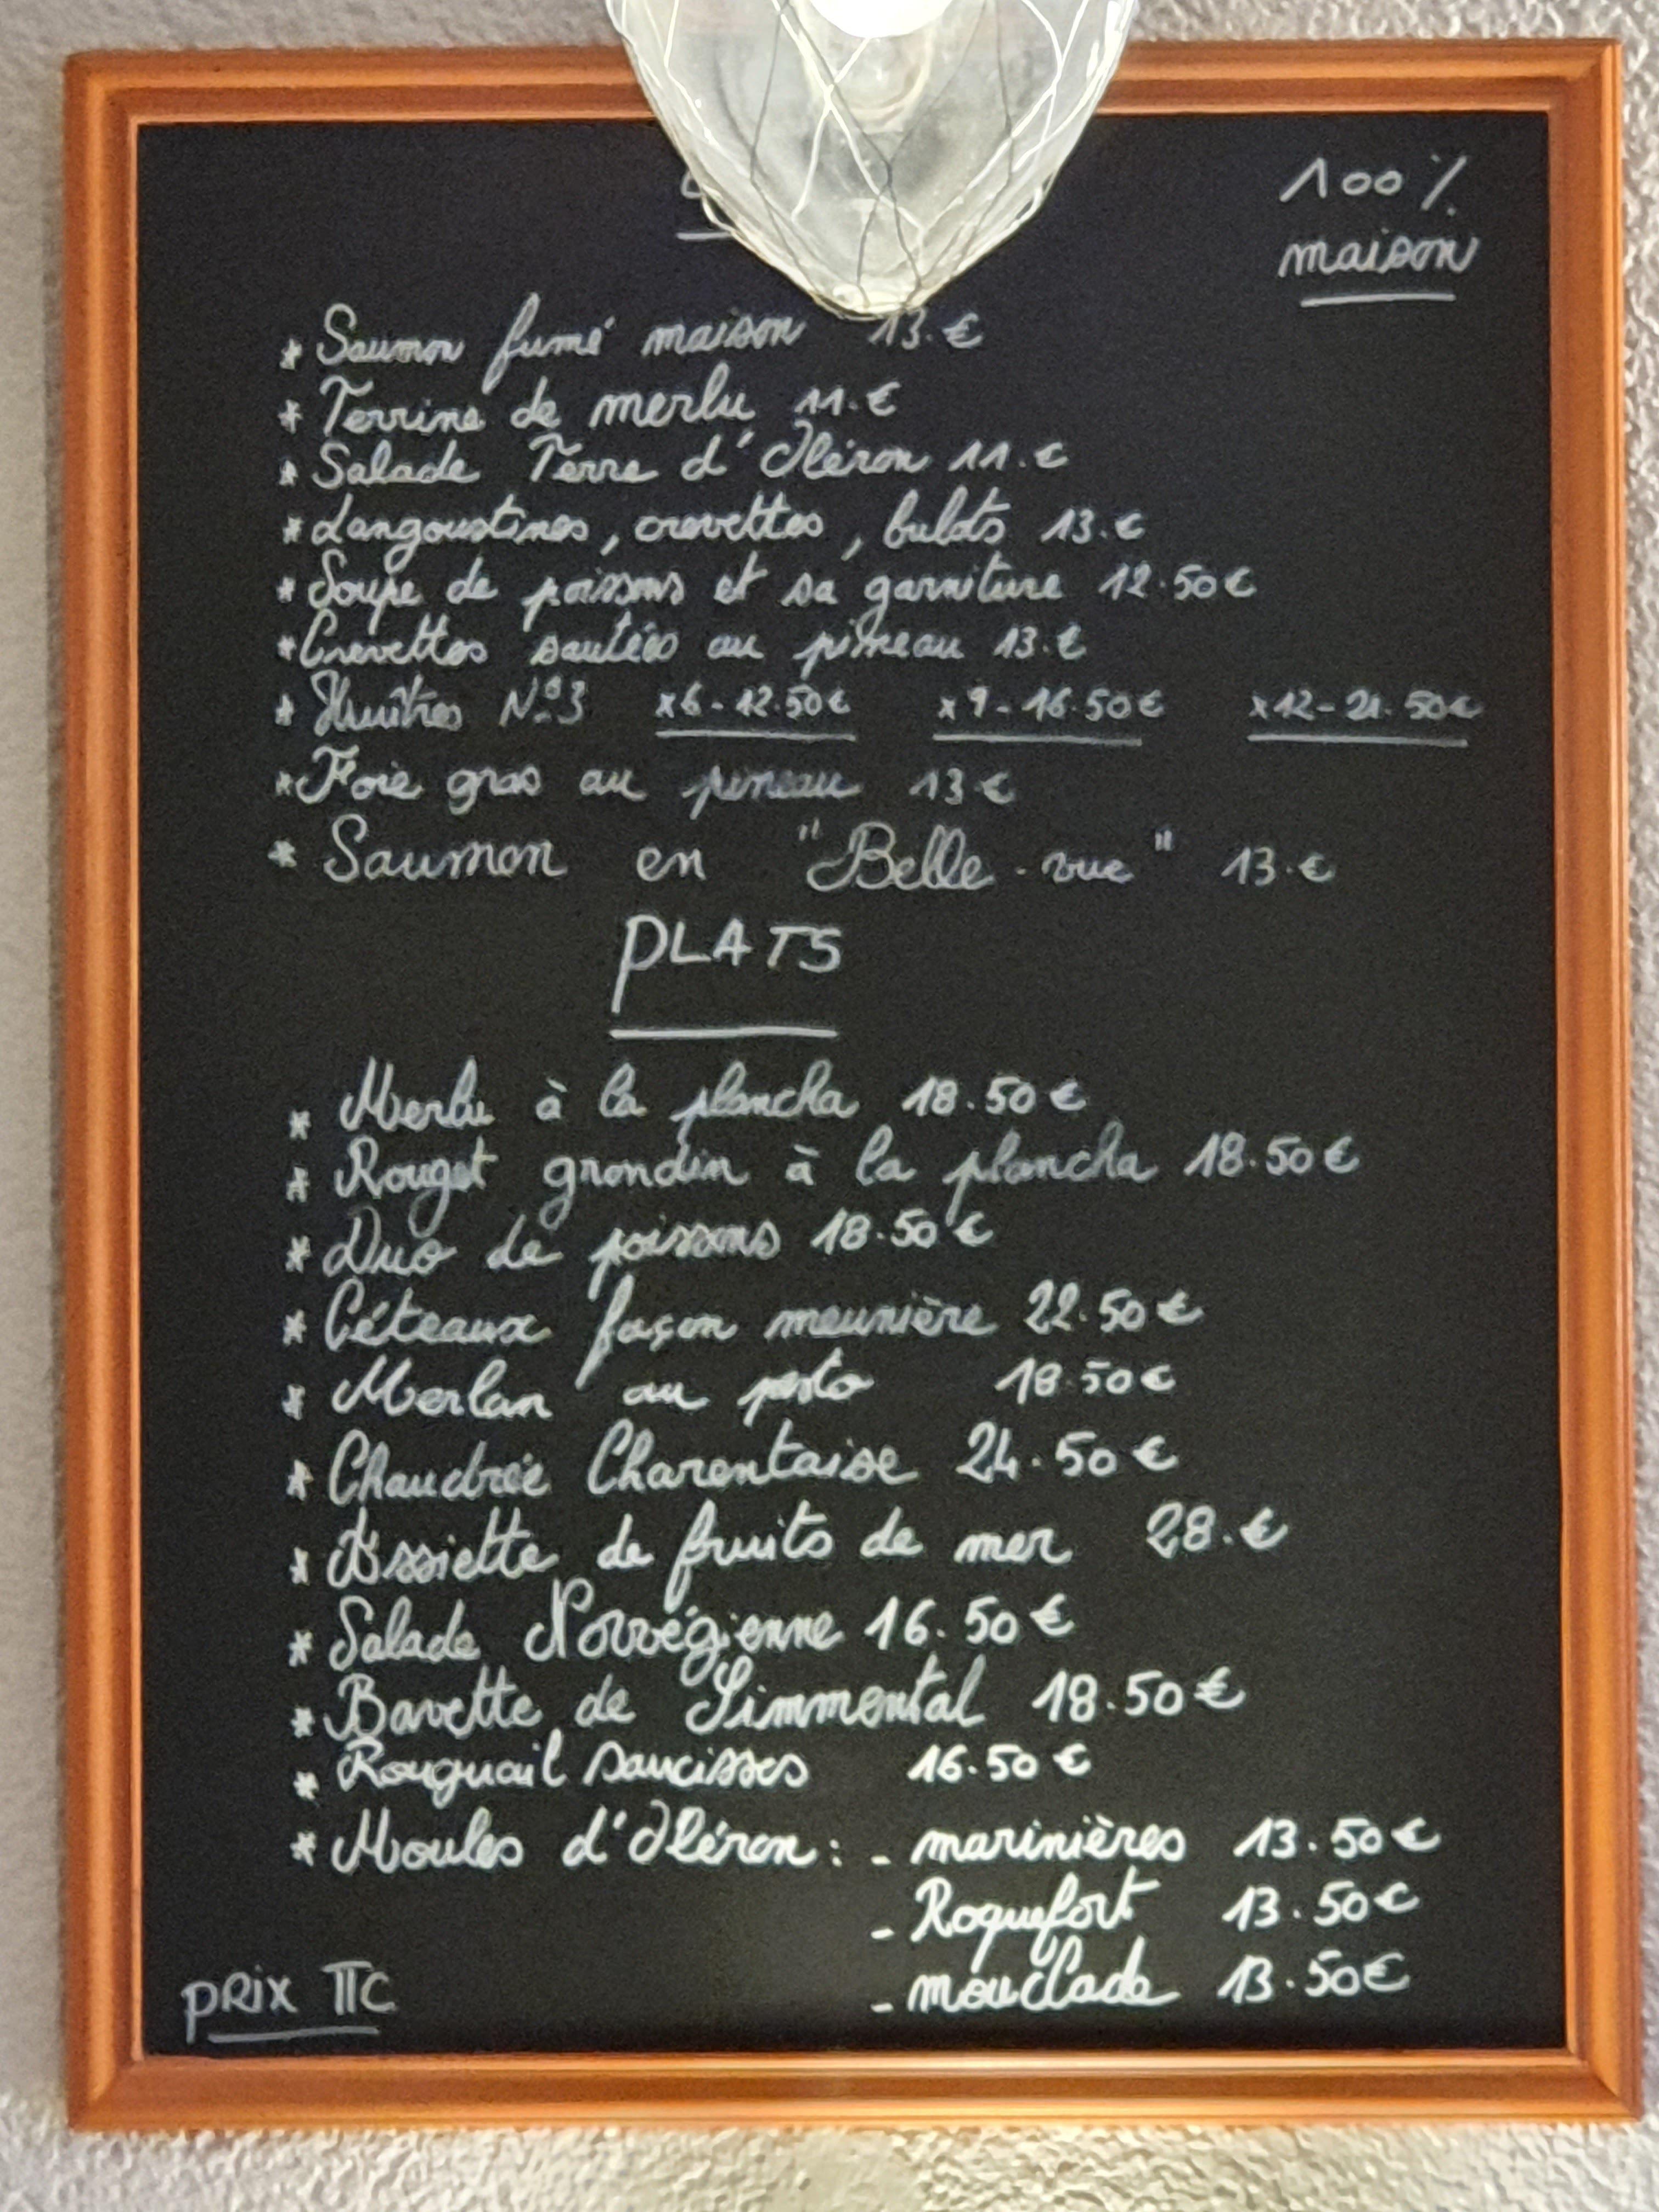 100%
maison
* Saumon fumé maison 13.€
* Terrine de merlu 11.€
* Salade Terre d'Oléron 11.€
* Langoustines, crevettes, bulots 13.€
* Soupe de poissons et sa garniture 12.50€
* Crevettes sautées au pineau 13.€
* Huîtres N°3 x6-12.50€ x9-16.50€ x12-21.50€
* Foie gras au pineau 13€
* Saumon en "Belle-vue" 13.€
PLATS
* Merlu à la plancha 18.50€
* Rouget grondin à la plancha 18.50€
* Duo de poissons 18.50€
* Céteaux façon meunière 22.50€
* Merlan au pesto 18.50€
* Chaudrée Charentaise 24.50€
* Assiette de fruits de mer 28.€
* Salade Norvégienne 16.50€
* Bavette de Simmental 18.50€
* Rouguail saucisses 16.50€
* Moules d'Oléron : - marinières 13.50€
- Roquefort 13.50€
- mouclade 13.50€
PRIX TTC